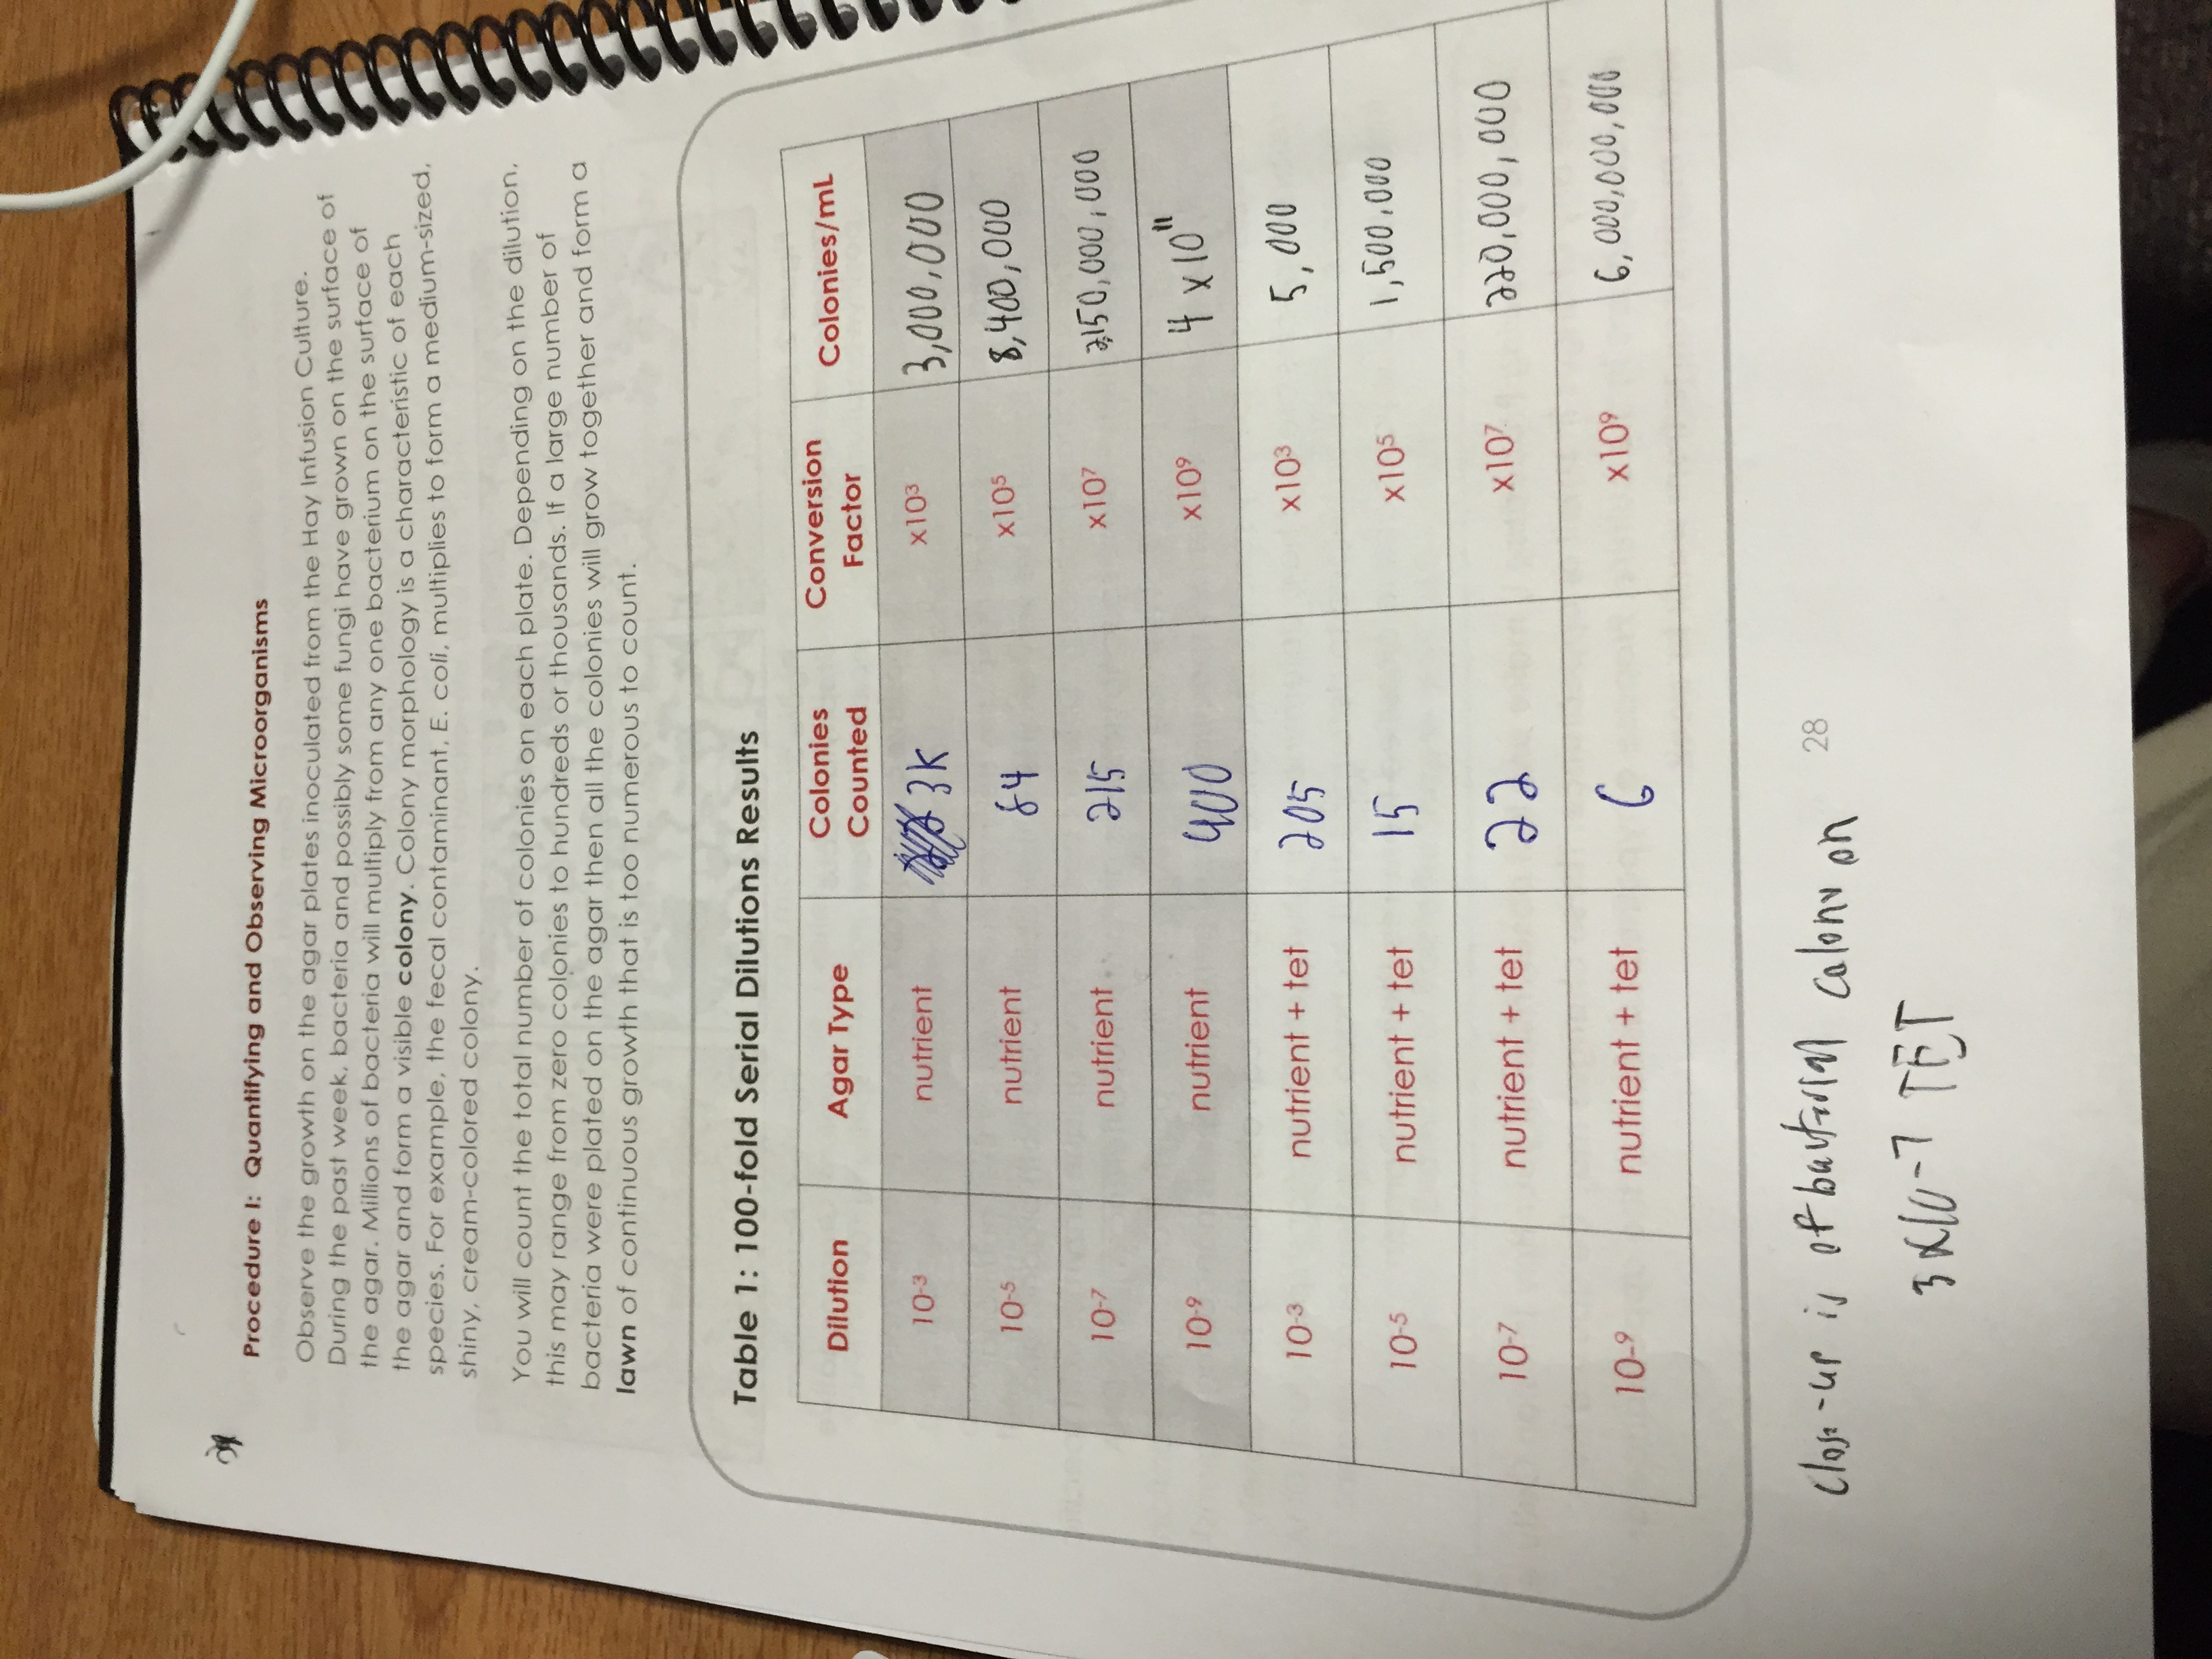 Procedure I: Quantifying and Observing Microorganisms
Observe the growth on the agar plates inoculated from the Hay Infusion Culture.
During the past week, bacteria and possibly some fungi have grown on the surface of
the agar. Millions of bacteria will multiply from any one bacterium on the surface of
the agar and form a visible colony. Colony morphology is a characteristic of each
species. For example, the fecal contaminant, E. coli, multiplies to form a medium-sized,
shiny, cream-colored colony.
You will count the total number of colonies on each plate. Depending on the dilution,
this may range from zero colonies to hundreds or thousands. If a large number of
bacteria were plated on the agar then all the colonies will grow together and form a
lawn of continuous growth that is too numerous to count.
Table 1: 100-fold Serial Dilutions Results
Dilution Agar Type Colonies Counted Conversion Factor Colonies/mL
10-3 nutrient 3K x10³ 3,000,000
10-5 nutrient 84 x10⁵ 8,400,000
10-7 nutrient 215 x10⁷ 2,150,000,000
10-9 nutrient 400 x10⁹ 4 x 10¹¹
10-3 nutrient + tet 205 x10³ 5,000
10-5 nutrient + tet 15 x10⁵ 1,500,000
10-7 nutrient + tet 22 x10⁷ 220,000,000
10-9 nutrient + tet 6 x10⁹ 6,000,000,000
28
Close-up is of bacterial colony on
-7 TET